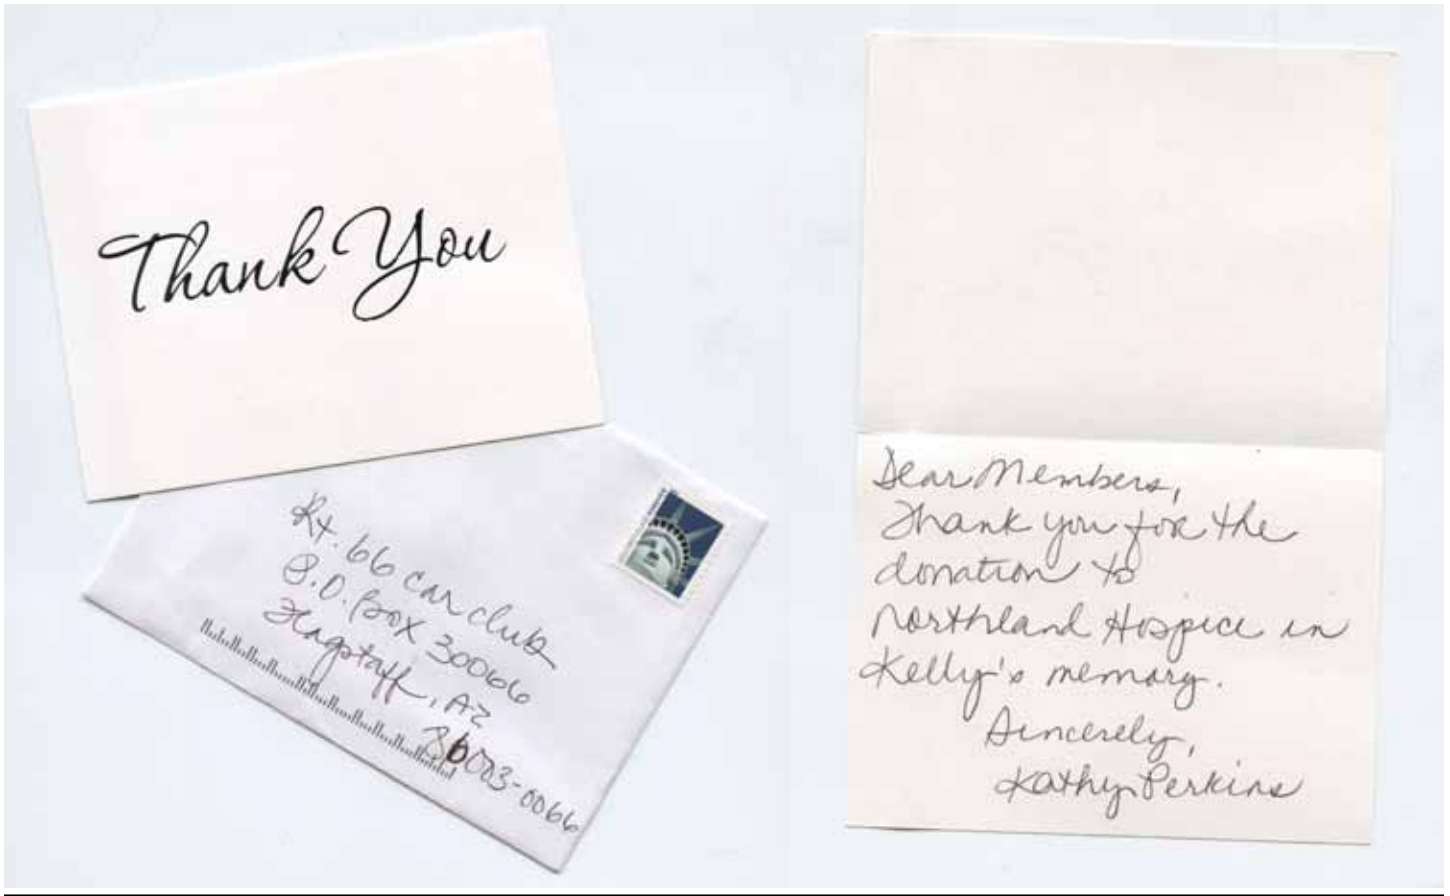 Thank You
Rt. 66 car club
P.O. Box 30066
Flagstaff, AZ
86003-0066
Dear Members,
Thank you for the
donation to
Northland Hospice in
Kelly's memory.
Sincerely,
Kathy Perkins